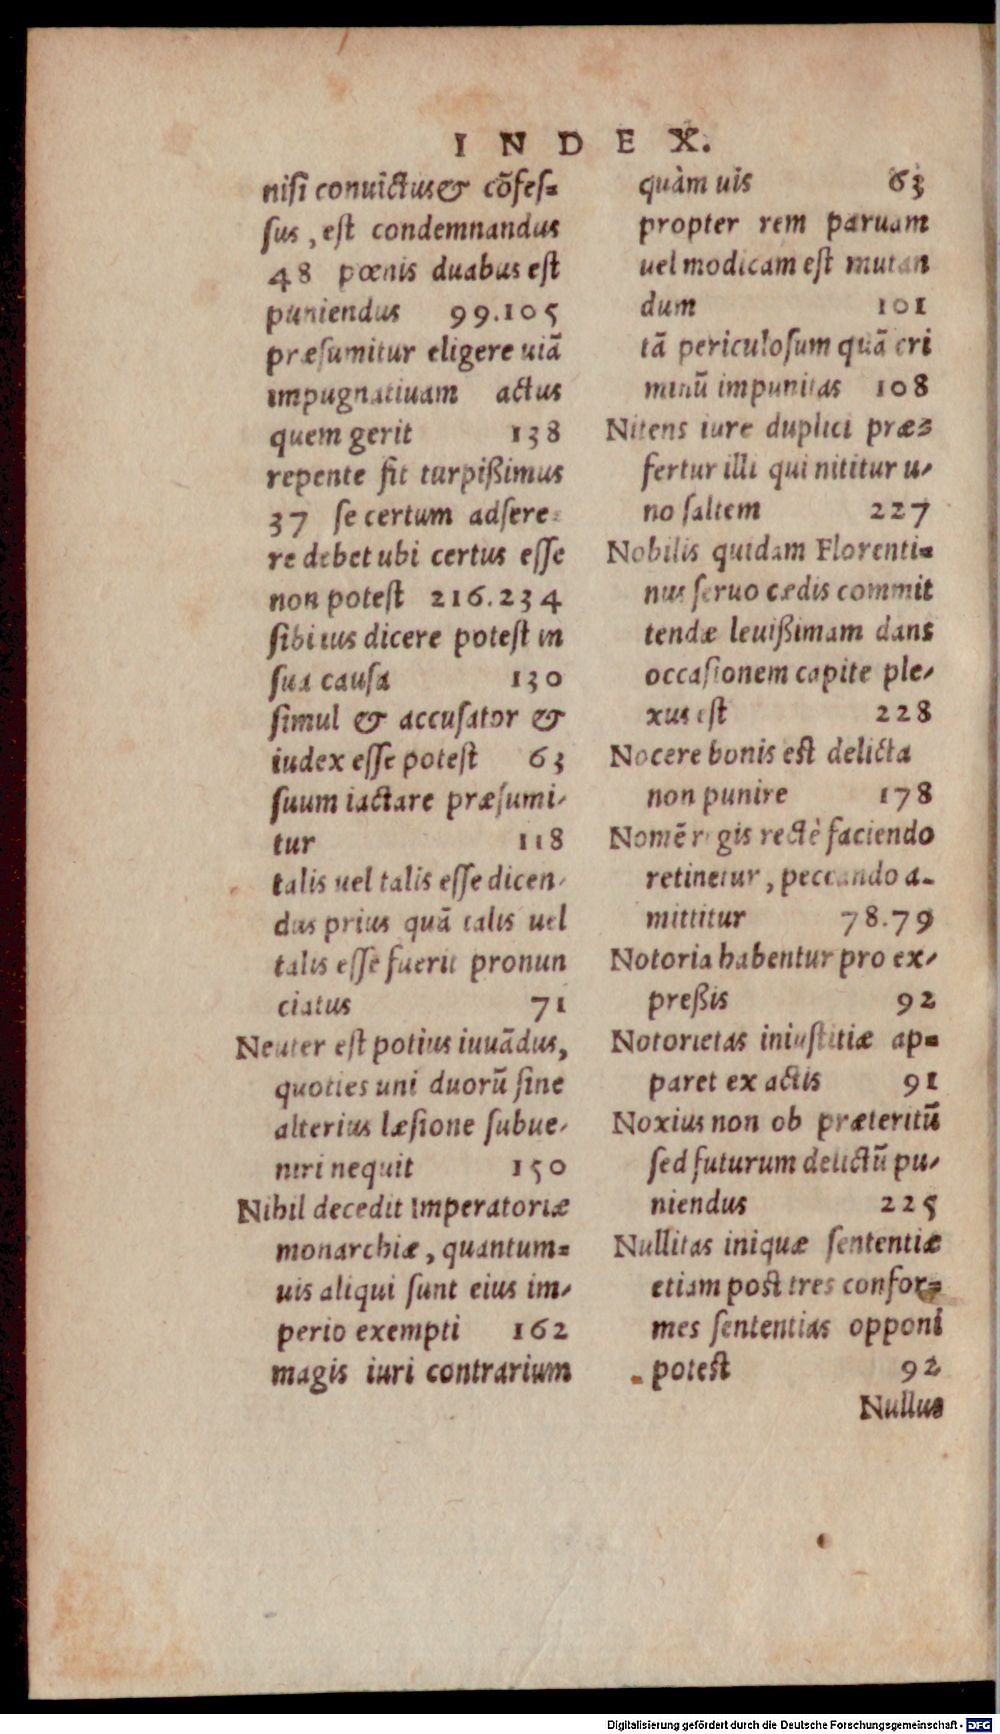 INDEX.
nisi conuictus & cõfes=
sus, est condemnandus
48 pœnis duabus est
puniendus 99.105
præsumitur eligere uiã
impugnatiuam actus
quem gerit 138
repente fit turpißimus
37 se certum adsere=
re debet ubi certus esse
non potest 216.234
sibi ius dicere potest in
sua causa 130
simul & accusator &
iudex esse potest 63
suum iactare præsumi-
tur 118
talis uel talis esse dicen-
dus prius quã talis uel
talis esse fuerit pronun
ciatus 71
Neuter est potius iuuãdus,
quoties uni duorũ sine
alterius læsione subue-
niri nequit 150
Nihil decedit imperatoriæ
monarchiæ, quantum=
uis aliqui sunt eius im-
perio exempti 162
magis iuri contrarium
quàm uis 63
propter rem paruam
uel modicam est mutan
dum 101
tã periculosum quã cri
minũ impunitas 108
Nitens iure duplici præ=
fertur illi qui nititur u-
no saltem 227
Nobilis quidam Florenti=
nus seruo cædis commit
tendæ leuißimam dans
occasionem capite ple-
xus est 228
Nocere bonis est delicta
non punire 178
Nomẽ regis rectè faciendo
retinetur, peccando a-
mittitur 78.79
Notoria habentur pro ex-
preßis 92
Notorietas iniustitiæ ap=
paret ex actis 91
Noxius non ob præteritũ
sed futurum delictũ pu-
niendus 225
Nullitas iniquæ sententiæ
etiam post tres confor=
mes sententias opponi
potest 92
Nullus
Digitalisierung gefördert durch die Deutsche Forschungsgemeinschaft - DFG